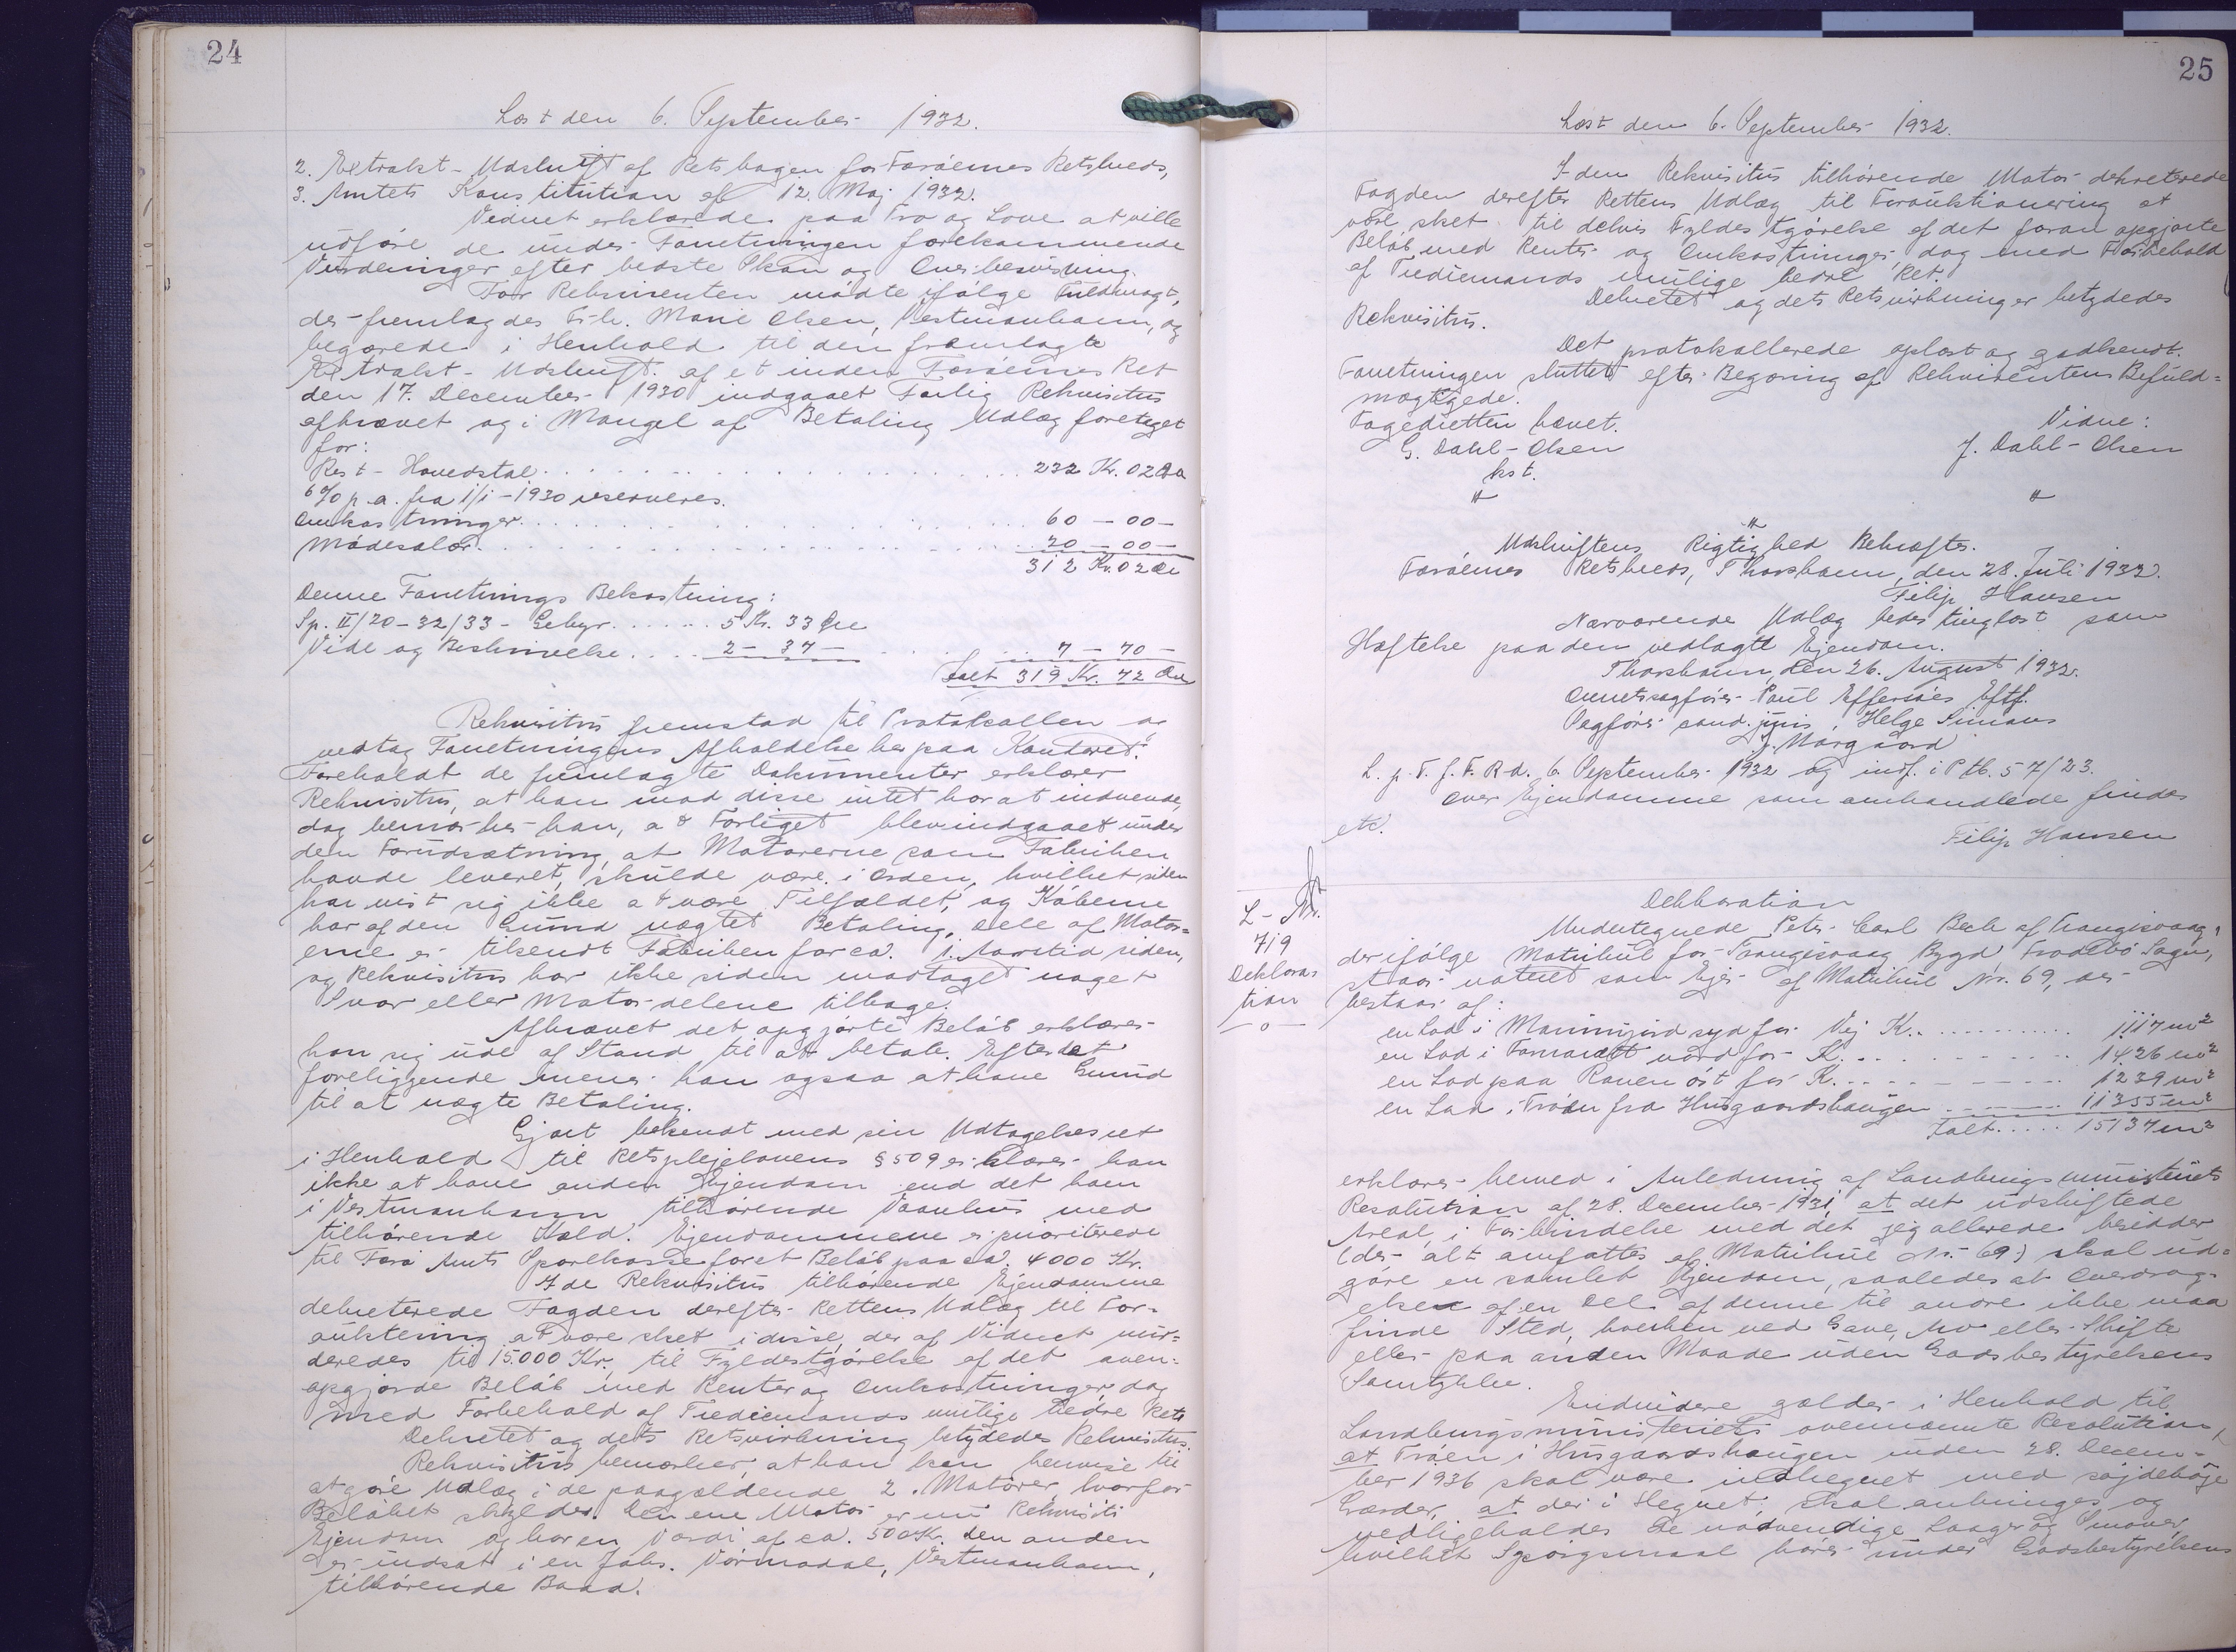 24
Læst den 6. September 1932.
2. Extrakt-Udskrift af Retsbogen for Færøernes Retskreds,
3. Amtets Konstitution af 12. Maj 1932.
Vidnet erklærede paa Tro og Love at ville
udføre de under Forretningen forekommende
Vurderinger efter bedste Skøn og Overbevisning.
For Rekvirenten mødte ifølge Fuldmagt,
der fremlagdes Frk. Marie Olsen, Vestmanhavn, og
begærede i Henhold til den fremlagte
Extrakt-Udskrift af et inden Færøernes Ret
den 17. December 1930 indgaaet Forlig Rekvisitus
afkrævet og i Mangel af Betaling Udlæg foretaget
for:
Rest-Hovedstol 232 Kr. 02 Øre
6% p.a. fra 1/1-1930 reserveres.
Omkostninger 60 - 00 -
Mødesalær 20 - 00 -
312 Kr. 02 Øre
Denne Forretnings Bekostning:
Sp. II/20-32/33 - Gebyr 5 Kr. 33 Øre
Vide og Beskrivelse 2 - 37 - 7 - 70 -
Ialt 319 Kr. 72 Øre
Rekvisitus fremstod til Protokollen og
vedtog Forretningens Afholdelse her paa Kontoret.
Foreholdt de fremlagte Dokumenter erklærer
Rekvisitus, at han mod disse intet har at indvende,
dog bemærker han, at Forliget blev indgaaet under
den Forudsætning, at Motorerne som Fabriken
havde leveret, skulde være i Orden, hvilket siden
har vist sig ikke at være Tilfældet, og Køberne
har af den Grund nægtet Betaling. Dele af Motor-
erne er tilsendt Fabriken for ca. 1. Aarstid siden,
og Rekvisitus har ikke siden modtaget noget
Svar eller Motor-delene tilbage.
Afkrævet det opgjorte Beløb erklærer
han sig ude af Stand til at betale. Efter det
foreliggende mener han ogsaa at have Grund
til at nægte Betaling.
Gjort bekendt med sin Udtagelsesret
i Henhold til Retsplejelovens § 509 erklærer han
ikke at have anden Ejendom end det ham
i Vestmanhavn tilhørende Vaanhus med
tilhørende Hold. Ejendommene er prioriterede
til Færø Amts Sparekasse for et Beløb paa ca. 4000 Kr.
I de Rekvisitus tilhørende Ejendomme
dekreterede Fogden derefter Rettens Udlæg til For-
auktering at være sket i disse, der af Vidnet vur-
deredes til 15.000 Kr. til Fyldestgørelse af det oven-
opgjorde Beløb med Renter og Omkostninger, dog
med Forbehold af Trediemands mulige bedre Ret.
Dekretet og dets Retsvirkning betydedes Rekvisitus.
Rekvisitus bemærker, at han kan henvise til
at gøre Udlæg i de paagældende 2. Motorer, hvorfor
Beløbet skyldes. Den ene Motor er nu Rekvisiti
Ejendom og har en Værdi af ca. 500 Kr. den anden
er indsat i en Johs. Vørmadal, Vestmanhavn,
tilhørende Baad.
25
Læst den 6. September 1932.
I den Rekvisitus tilhørende Motor dekreterede
Fogden derefter Rettens Udlæg til Forauktionering at
være sket til delvis Fyldestgørelse af det foran opgjorte
Beløb med Renter og Omkostninger dog med Forbehold
af Trediemands mulige bedre Ret.
Dekretet og dets Retsvirkning er betydedes
Rekvisitus.
Det protokollerede oplæst og godkendt.
Forretningen sluttet efter Begæring af Rekvirentens Befuld-
mægtigede.
Fogedretten hævet. Vidne:
G. Dahl-Olsen J. Dahl-Olsen
kst.
Udskriftens Rigtighed Bekræftes.
Færøernes Retskreds, Thorshavn, den 28. Juli 1932.
Filip Hansen
Nærværende Udlæg bedes tinglæst som
Hæftelse paa den vedlagte Ejendom.
Thorshavn, den 26. August 1932.
Overretssagfører Poul Effersøes Eftf.
Sagfører cand. juris. Helge Simons
J. Mørgaard
L. p. T. f. F. R-d. 6. September 1932 og indf. i P tb. 57/23.
Over Ejendomme som omhandlede findes
etc.
Filip Hansen
L-Nr.
719
Deklara-
tion
-o-
Deklaration
Undertegnede Peter Carl Bech af Trangisvaag,
der ifølge Matrikul for Trangisvaag Bygd Frodebø Sogn,
staar noteret som Ejer af Matrikul Nr. 69, der
bestaar af:
en Lod i Manningird syd for Vej K. 1117 m²
en Lod i Fornarætt nord for K. 1426 m²
en Lod paa Ranen øst for K. 1239 m²
en Lod i Trøen fra Husgaardshaugen 11355 m²
Ialt 15137 m²
erklærer herved i Anledning af Landbrugsministeriets
Resolution af 28. December 1931, at det udskiftede
Areal, i Forbindelse med det jeg allerede besidder
(der alt omfattes af Matrikul Nr. 69) skal ud-
gøre en samlet Ejendom, saaledes at Overdrag-
elsen af en Del af denne til andre ikke maa
finde Sted, hverken ved Gave, Arv eller Skifte
eller paa anden Maade uden Godsbestyrelsens
Samtykke.
Endvidere gælder i Henhold til
Landbrugsministeriets ovennævnte Resolution,
at Trøen i Husgaardshaugen inden 28. Decem-
ber 1936 skal være indhegnet med søjdehøje
Gærder, at der i Hegnet skal anbringes og
vedligeholdes de nødvendige Laager og Smover,
hvilket Spørgsmaal hører under Godsbestyrelsens